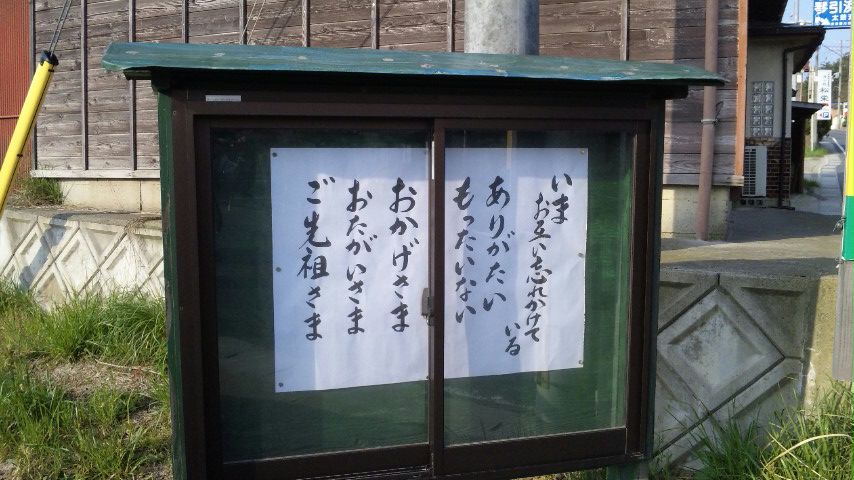 いま
お互い忘れかけて
いる
ありがたい
もったいない
おかげさま
おたがいさま
ご先祖さま
琴引浜